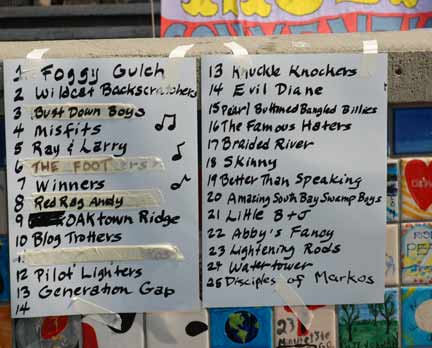 1 Foggy Gulch
2 Wildcat Backscratchers
3 Bust Down Boys
4 Misfits
5 Ray & Larry
6 THE FOOT
7 Winners
8 Red Rag Andy
9 OAKtown Ridge
10 Blog Trotters
12 Pilot Lighters
13 Generation Gap
14
13 Knuckle Knockers
14 Evil Diane
15 Pearl Buttoned Bangled Billies
16 The Famous Haters
17 Braided River
18 Skinny
19 Better Than Speaking
20 Amazing South Bay Swamp Boys
21 Little B+J
22 Abby's Fancy
23 Lightening Rods
24 Watertower
25 Disciples of Markos